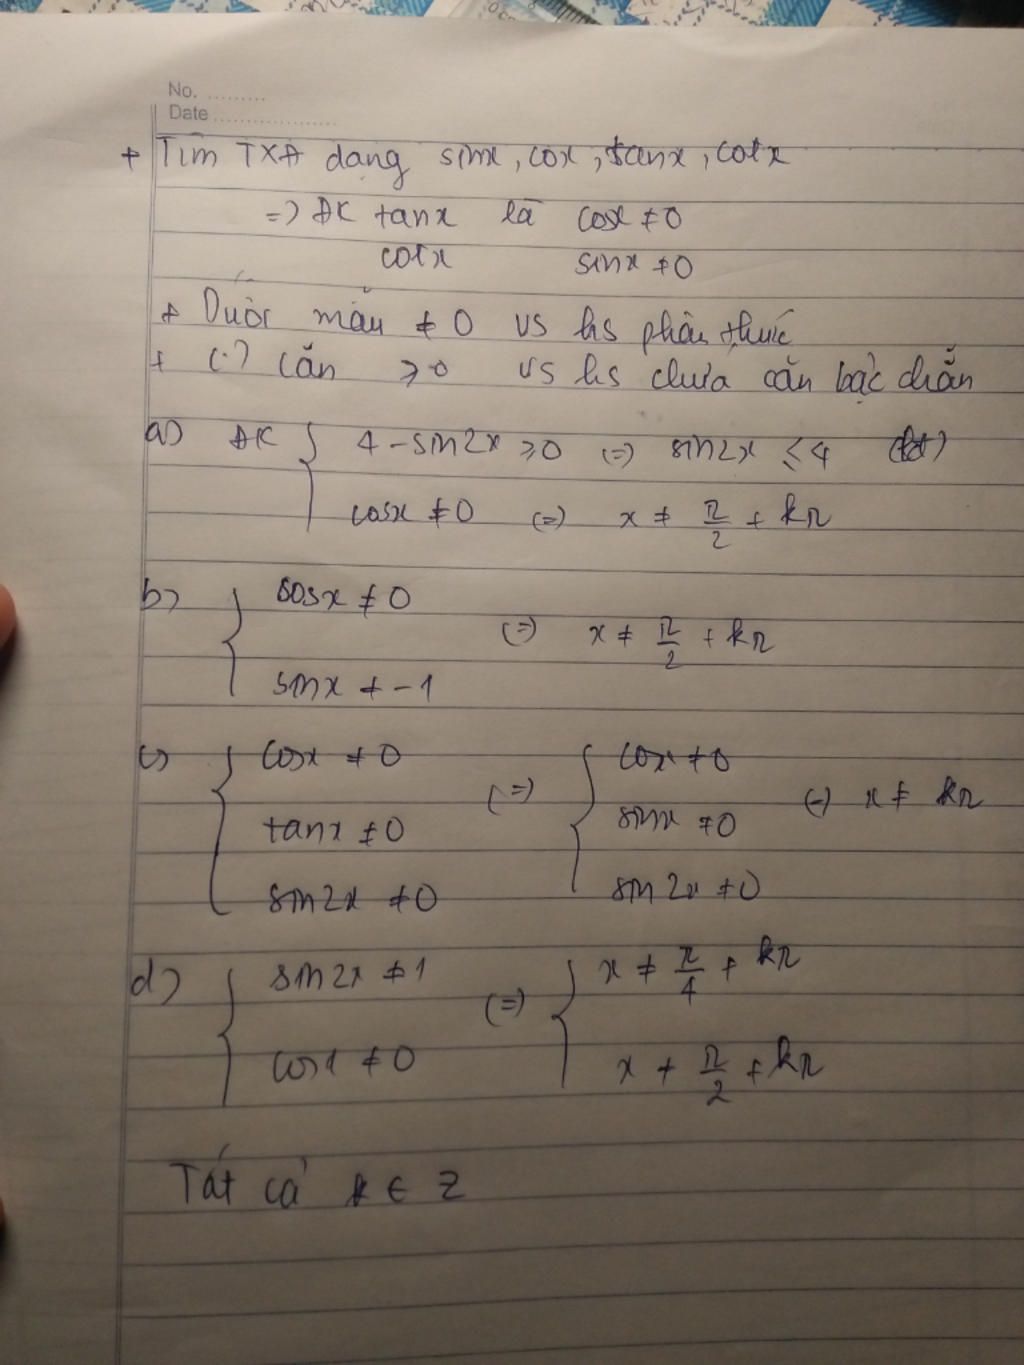 No. .........
Date ..................
+ Tìm TXĐ dạng sinx, cox, tanx, cotx
=> ĐK tanx là cosx ≠ 0
cotx sinx ≠ 0
+ Dưới mẫu ≠ 0 vs hs phân thức
+ (.) căn ≥ 0 vs hs chứa căn bậc chẵn
a) ĐK { 4 - sin2x ≥ 0 (=) sin2x ≤ 4
cosx ≠ 0 (=) x ≠ π/2 + kπ
b) { cosx ≠ 0
(=) x ≠ π/2 + kπ
sinx ≠ -1
c) { cosx ≠ 0 (=) { cosx ≠ 0 (=) x ≠ kπ
tanx ≠ 0 sinx ≠ 0
sin2x ≠ 0 sin2x ≠ 0
d) { sin2x ≠ 1 (=) { x ≠ π/4 + kπ
cosx ≠ 0 x ≠ π/2 + kπ
Tất cả k ∈ Z